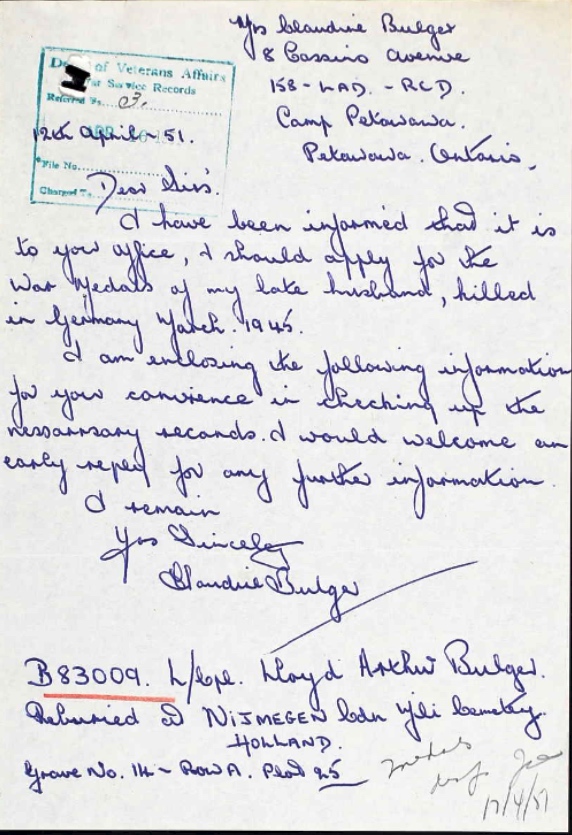 Mrs Claudine Bulger
8 Cassino Avenue
158 - LAD. - RCD.
Camp Petawawa.
Petawawa. Ontario.
Dept of Veterans Affairs
War Service Records
Referred To
03.
12th April - 51.
File No.
Charged To
Dear Sirs.
I have been informed that it is
to your office, I should apply for the
War Medals of my late husband, killed
in Germany March. 1945.
I am enclosing the following information
for your convience in checking up the
nessarsary records. I would welcome an
early reply for any further information.
I remain
Yrs Sincerely
Claudine Bulger
B83009. L/Cpl. Lloyd Arthur Bulger.
Reburied at NIJMEGEN Cdn Mili Cemetery.
HOLLAND.
Grave No. 14 - Row A. Plot
medals
17/4/51